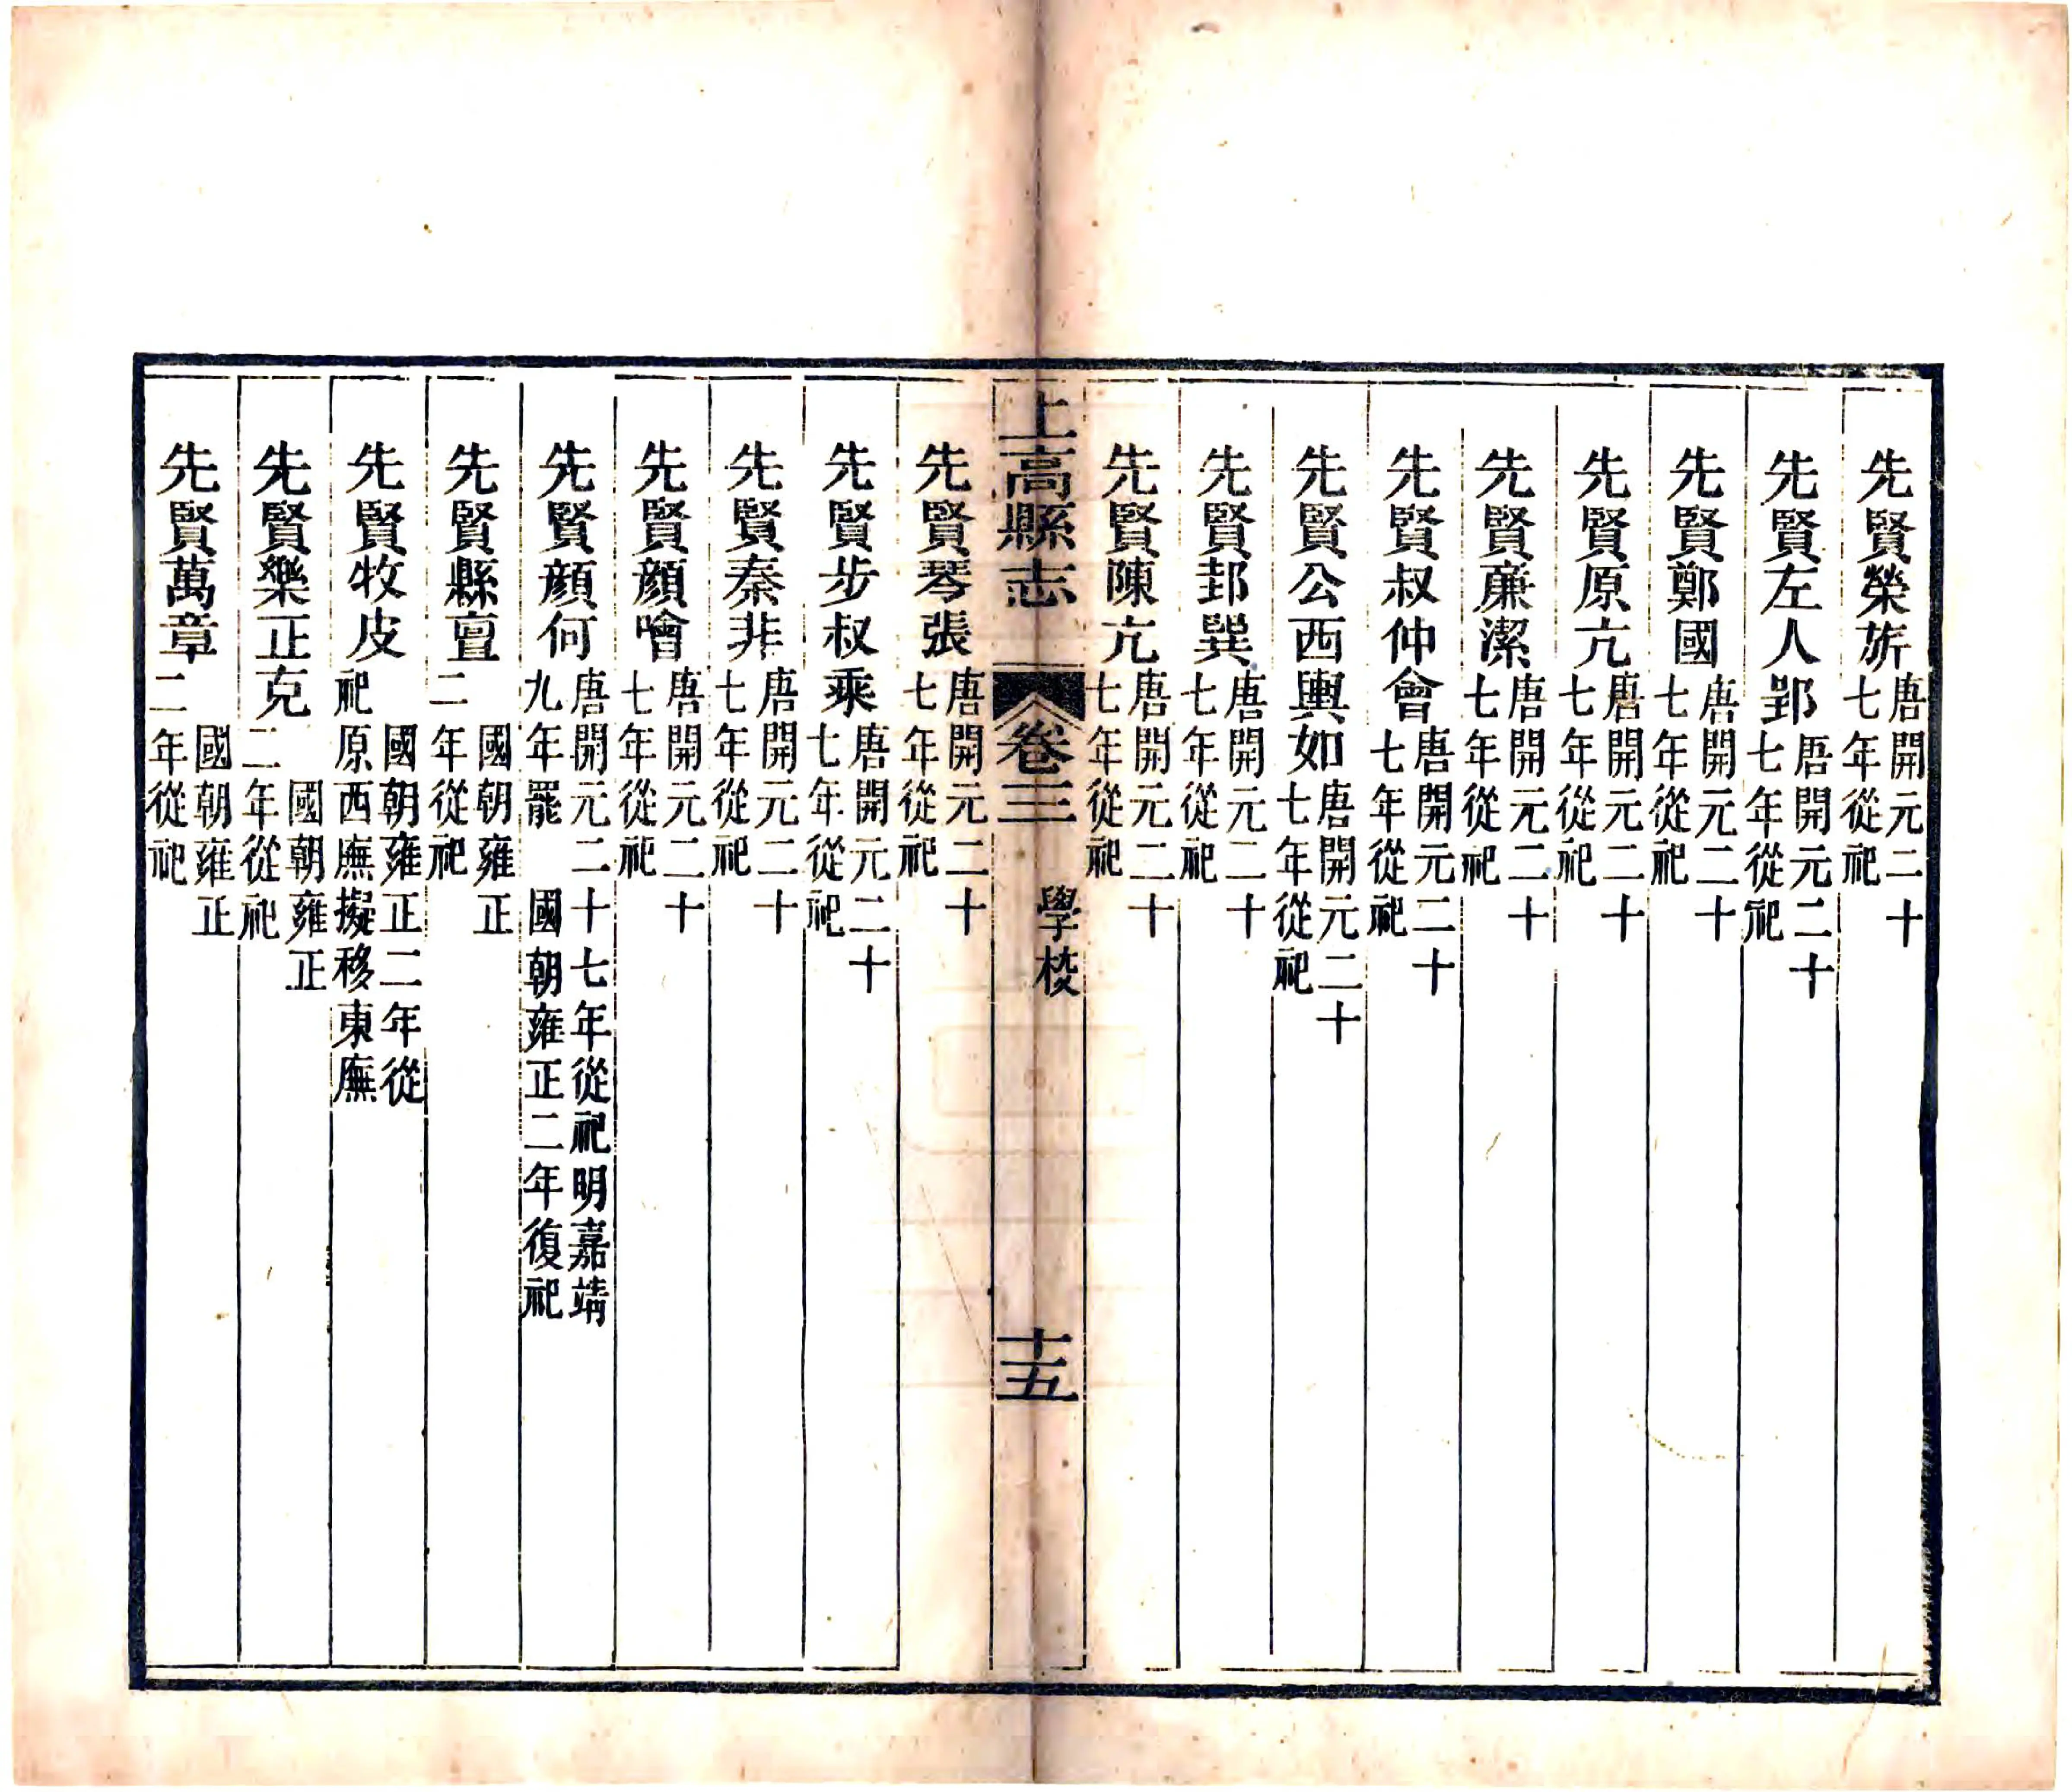 先賢榮旂唐開元二十七年從祀
先賢左人郢唐開元二十七年從祀
先賢鄭國唐開元二十七年從祀
先賢原亢唐開元二十七年從祀
先賢廉潔唐開元二十七年從祀
先賢叔仲會唐開元二十七年從祀
先賢公西輿如唐開元二十七年從祀
先賢邽巽唐開元二十七年從祀
先賢陳亢唐開元二十七年從祀
上高縣志 卷三 學校 十五
先賢琴張唐開元二十七年從祀
先賢步叔乘唐開元二十七年從祀
先賢秦非唐開元二十七年從祀
先賢顏噲唐開元二十七年從祀
先賢顏何唐開元二十七年從祀明嘉靖九年罷 國朝雍正二年復祀
先賢縣亶 國朝雍正二年從祀
先賢牧皮 國朝雍正二年從祀原西廡擬移東廡
先賢樂正克 國朝雍正二年從祀
先賢萬章 國朝雍正二年從祀